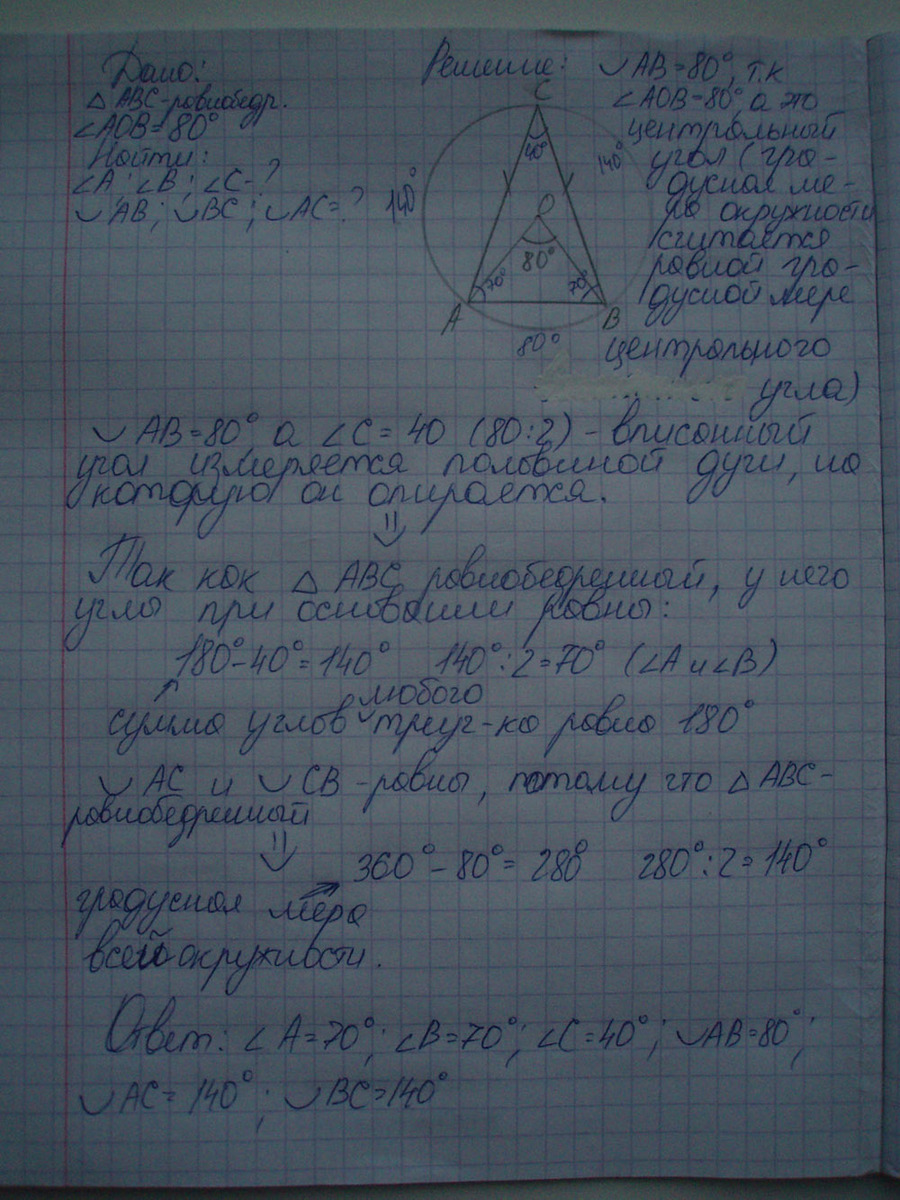 Дано:
△ ABC-равнобедр.
∠AOB = 80°
Найти:
∠A; ∠B; ∠C-?
◡AB; ◡BC; ◡AC=?
Решение:
◡AB=80°, т.к
∠AOB=80°, а это
центральный
угол (гра-
дусная ме-
ра окружности
считается
равной гра-
дусной мере
центрального
угла)
C
40°
140°
140°
O
80°
70°
70°
A
B
80°
◡AB=80° а ∠C = 40 (80:2) - вписанный
угол измеряется половиной дуги, на
которую он опирается.
⇓
Так как △ ABC равнобедренный, у него
углы при основании равны:
180°-40°=140° 140°:2=70° (∠A и ∠B)
любого
сумма углов треуг-ка равна 180°
◡AC и ◡CB - равны, потому что △ABC-
равнобедренный
⇓
360°-80°= 280° 280°:2=140°
градусная мера
всей окружности.
Ответ: ∠A=70°; ∠B=70°; ∠C=40°; ◡AB=80°;
◡AC= 140°; ◡BC=140°